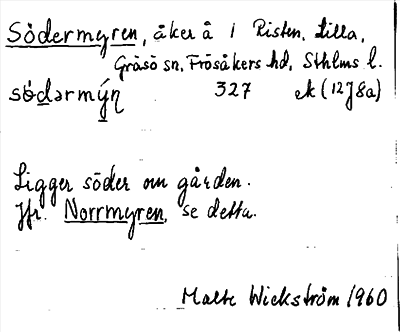 Södermyren, åker å 1 Risten, Lilla,
Gräsö sn, Frösåkers hd, Sthlms l.
södərmýn̥ 327 ek (12J8a)
Ligger söder om gården.
Jfr. Norrmyren, se detta.
Malte Wickström 1960